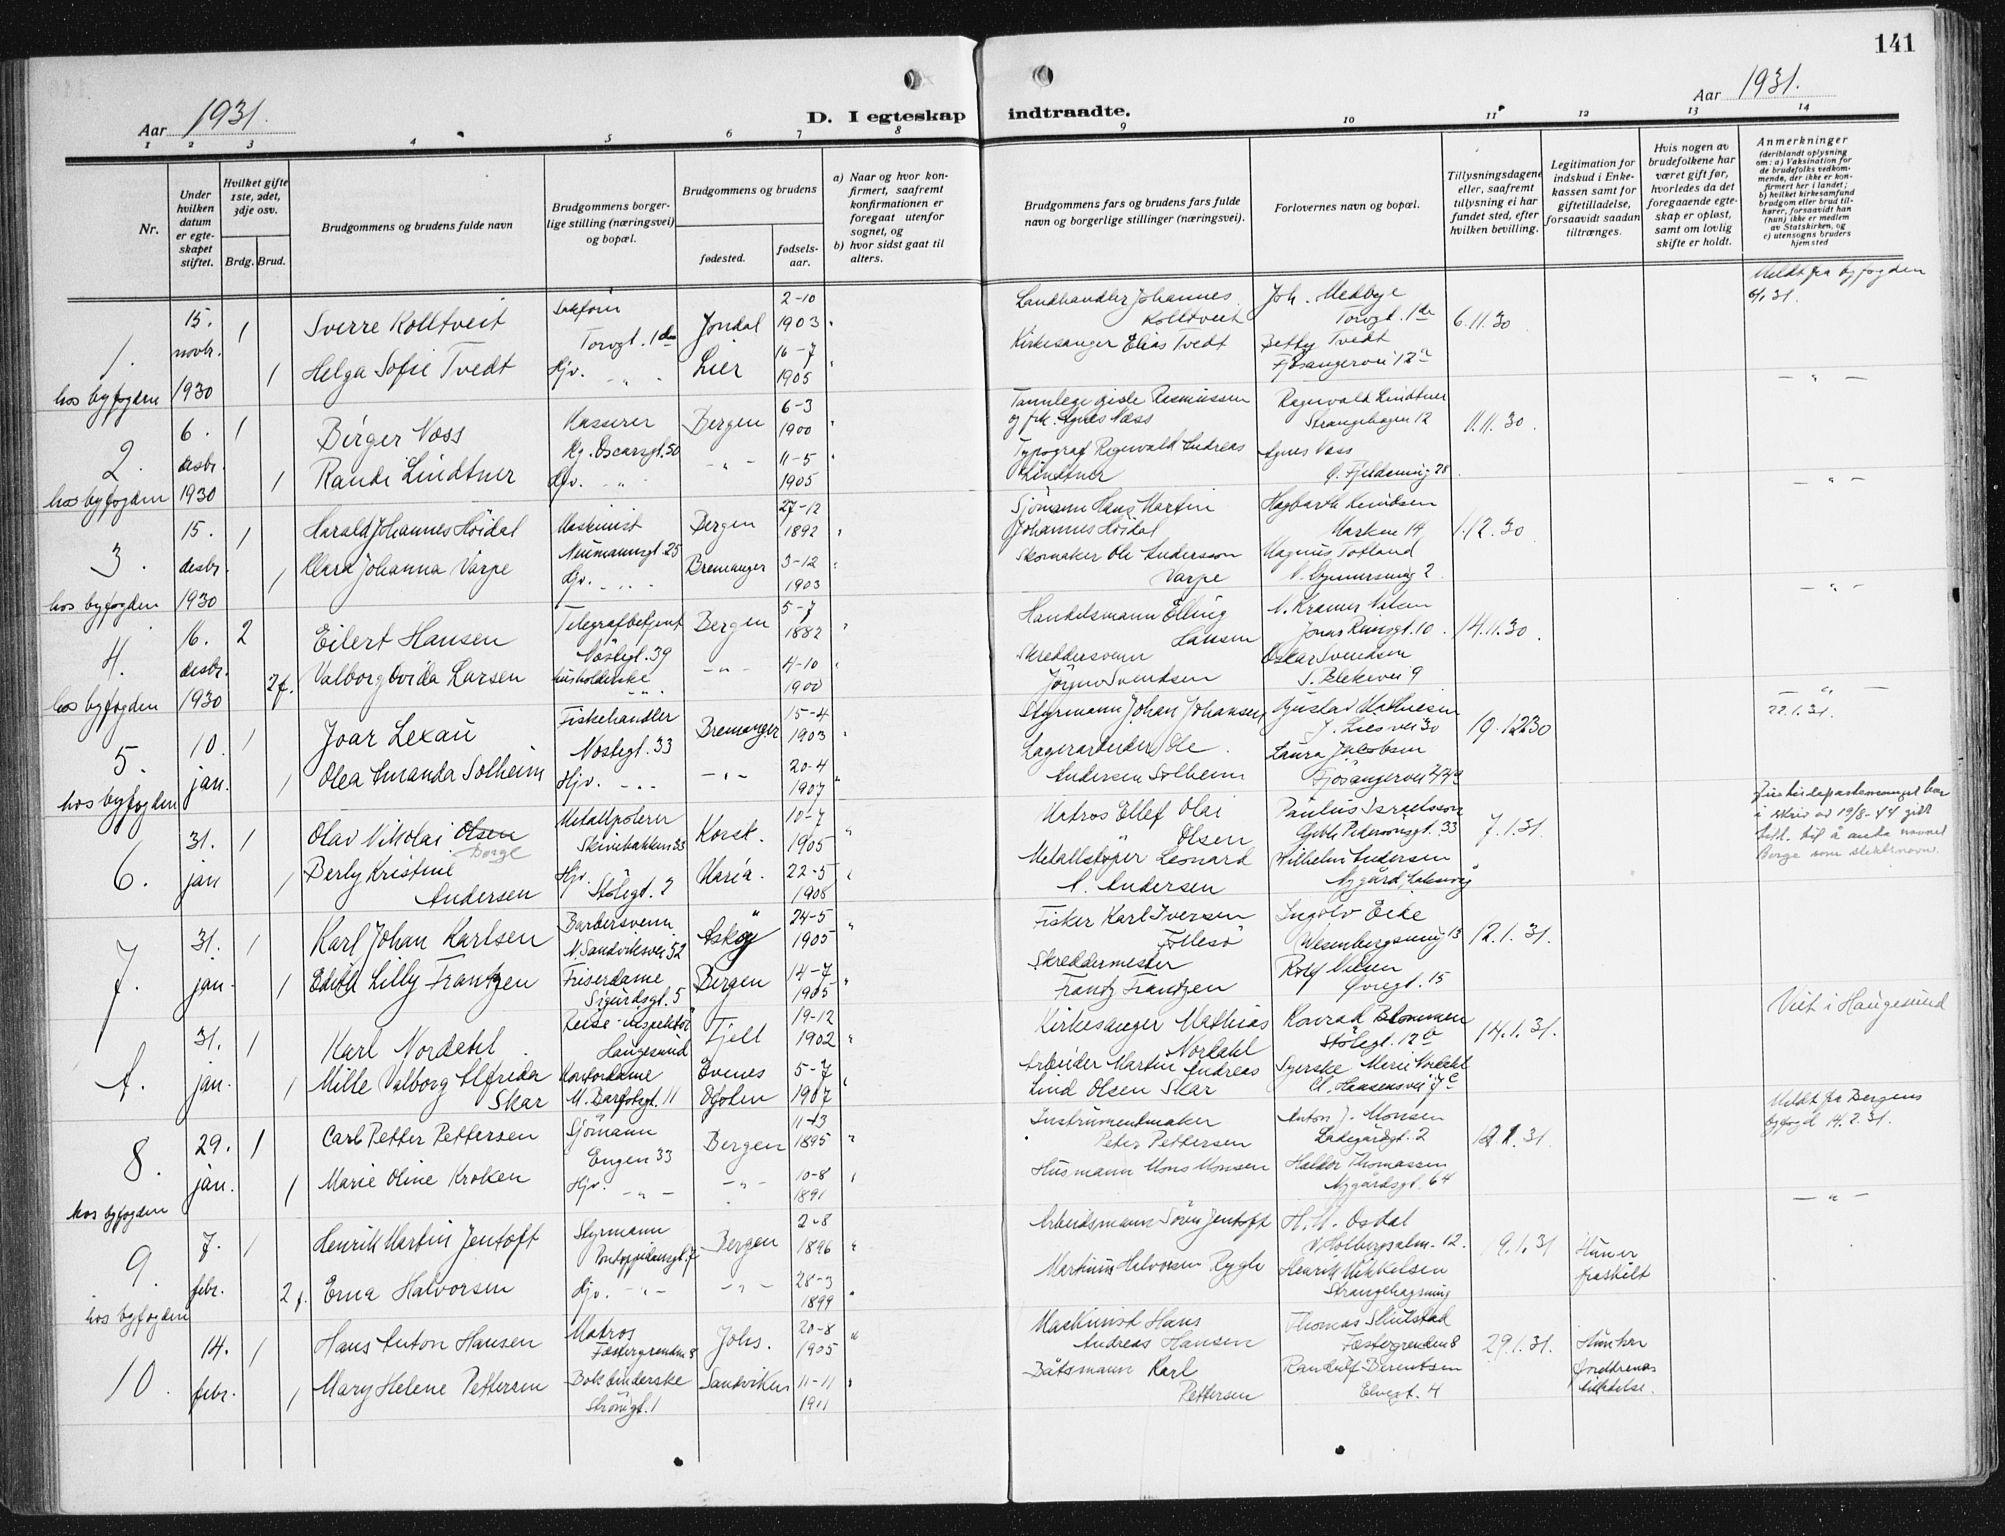 141
Aar 1931.
D. I egteskap indtraadte.
Aar 1931.
1 2 3 4 5 6 7 8 9 10 11 12 13 14
Nr.
Under hvilken datum er egteskapet stiftet.
Hvilket gifte 1ste, 2det, 3dje osv.
Brdg. Brud.
Brudgommens og brudens fulde navn
Brudgommens borgerlige stilling (næringsvei) og bopæl.
Brudgommens og brudens
fødested.
fødselsaar.
a) Naar og hvor konfirmert, saafremt konfirmationen er foregaat utenfor sognet, og
b) hvor sidst gaat til alters.
Brudgommens fars og brudens fars fulde navn og borgerlige stillinger (næringsvei).
Forlovernes navn og bopæl.
Tillysningsdagene eller, saafremt tillysning ei har fundet sted, efter hvilken bevilling.
Legitimation for indskud i Enkekassen samt for giftetilladelse, forsaavidt saadan tiltrænges.
Hvis nogen av brudefolkene har været gift før, hvorledes da det foregaaende egteskap er opløst, samt om lovlig skifte er holdt.
Anmerkninger
(deriblandt oplysning om: a) Vaksination for de brudefolks vedkommende, der ikke er konfirmert her i landet; b) hvilket kirkesamfund brudgom eller brud tilhører, forsaavidt han (hun) ikke er medlem av Statskirken, og c) utensogns bruders hjemsted
1. hos byfogden
15. novbr. 1930
1 Sverre Kolltveit
Torvgt. 1
Jondal 2-10 1903
1 Helga Sofie Tvedt
Hjv. Lier 16-7 1905
Landhandler Johannes Kolltveit
Kirkesanger Elias Tvedt
Joh. Medbye
Torvgt.
Betty Tvedt
Fjøsangervei 12
6.11.30
Meldt fra byfogden
2. hos byfogden
6. desbr. 1930
1 Birger Næss
Kasserer
Kg. Oscarsgt. 50
Bergen 6-3 1900
1 Randi Lindtner
Hjv. - " - 11-5 1905
Tannlege Gisle Rasmussen
og frk. Agnes Næss
Typograf Regnvald Andreas Lindtner
Ragnvald Lindtner
Strangehagen 12
Agnes Næss
11.11.30
- " -
3. hos byfogden
15. desbr. 1930
1 Harald Johannes Höidal
Maskinist
Neumannsgt. 25
Bergen 27-12 1892
1 Clara Johanna Varpe
Hjv. Bremanger 3-12 1903
Sjömann Hans Martin Johannes Höidal
Skomaker Ole Anderson Varpe
Hagbarth Knudsen
Marken 14
Magnus Totland
1.12.30
- " -
4. hos byfogden
16. desbr. 1930
2 Eilert Hansen
Telegrafbetjent
Nöstegt. 39
Bergen 5-7 1882
2 f. Valborg Ovida Larsen
- " - 4-10 1900
Handelsmann Elling Hansen
Skreddersvenn
Jörgen Svendsen
Jonas Reinsgt. 10
Oskar Svendsen
14.11.30
- " -
5. hos byfogden
10. jan.
1 Joar Lexau
Fiskehandler
Nöstegt. 33
Bremanger 15-4 1903
1 Olea Amanda Solheim
Hjv. - " - 20-4 1907
Styrmann Johan Johansen
Lagerarbeider Ole Andersen Solheim
Gustav Mathiesen
J. Liesvei 30
Laura Jakobsen
19.12.30
- " -
22.1.31.
6.
31. jan
1 Olav Nikolai Olsen
Borge
Metallpolerer
Skivebakken 33
Korsk. 10-7 1905
1 Berly Kristine Andersen
Hjv.
Stölegt. 2
Maria. 22-5 1908
Matros Ellef Olai Olsen
Metallstöper Leonard A. Andersen
Paulus Israelsson
Gabr. Pedersonsgt. 33
Wilhelm Andersen
7.1.31.
Justisdepartementet har
i skriv av 19/8-44 gitt
till. til å anta navnet
Borge som slektsnavn.
7.
31. jan.
1 Karl Johan Karlsen
Barbersvenn
N. Sandviksvei 52
Askøy 24-5 1905
1 Edith Lilly Frantzen
Friserdame
Sigurdsgt. 5
Bergen 14-7 1905
Fisker Karl Iversen Follesö
Skreddermester
Frantz Frantzen
Ingolv Eide
Wesenbergsmug 13
Rolf Nilsen
Øvregt. 15
12.1.31.
A.
31. jan.
1 Karl Nordahl
Reise-inspektör
Haugesund
Tjelt 19-12 1902
1 Mille Valborg Alfreda Skar
Kontordame
Evenes 5-7 1907
Kirkesanger Mathias Nordahl
Arbeider Martin Andreas
Lind Olsen Skar
Konrad Blommen
Stölegt. 12
Syerske Merie Nordahl
14.1.31.
Viet i Haugesund
8. hos byfogden
29. jan.
1 Carl Petter Pettersen
Sjömann
Engen 33
Bergen 11-3 1895
1 Marie Oline Kroken
Hjv. - " - 10-8 1891
Instrumentmaker
Peter Pettersen
Husmann Mons Monsen
Anton J. Monsen
Ladegårdsgt. 2
Haldor Thomassen
Nygårdsgt. 64
Meldt fra Bergens
byfogd 14.2.31.
9. hos byfogden
7. febr.
1 Henrik Martin Jentoft
Styrmann
Pontoppidansgt. 7
Bergen 2-8 1896
2 f. Erna Halvorsen
Hjv. - " - 28-3 1899
Arbeidsmann Sören Jentoft
Martinus Halvorsen Rygh
H. M. Osdal
V. Holbergsalm. 12.
Henrik Mikkelsen
19.1.31
Hun er
fraskilt
- " -
10.
14. febr.
1 Hans Anton Hansen
Matros
Fæstergrenden 8
Johs. 20-8 1905
1 Mary Helene Pettersen
Bokbinderske
Strömgt. 1
Sandviken 11-11 1911
Maskinist Hans Andreas Hansen
Båtsmann Karl Pettersen
Thomas Skutstad
Fæstergrenden 8
Randulf Berentsen
Elvegt. 4
29.1.31.
Hun har
foreldrenes
tillatelse.